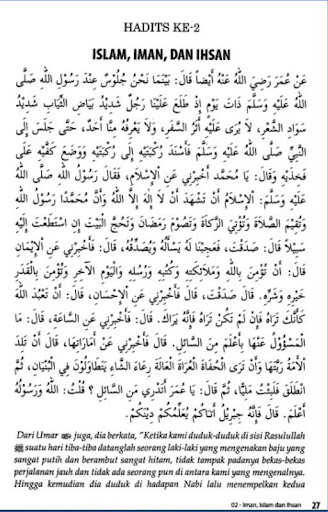 HADITS KE-2
ISLAM, IMAN, DAN IHSAN
عَنْ عُمَرَ رَضِيَ اللهُ عَنْهُ أَيْضاً قَالَ: بَيْنَمَا نَحْنُ جُلُوْسٌ عِنْدَ رَسُوْلِ اللهِ صَلَّى
اللهُ عَلَيْهِ وَسَلَّمَ ذَاتَ يَوْمٍ إِذْ طَلَعَ عَلَيْنَا رَجُلٌ شَدِيْدُ بَيَاضِ الثِّيَابِ شَدِيْدُ
سَوَادِ الشَّعْرِ، لاَ يُرَى عَلَيْهِ أَثَرُ السَّفَرِ، وَلاَ يَعْرِفُهُ مِنَّا أَحَدٌ، حَتَّى جَلَسَ إِلَى
النَّبِيِّ صَلَّى اللهُ عَلَيْهِ وَسَلَّمَ فَأَسْنَدَ رُكْبَتَيْهِ إِلَى رُكْبَتَيْهِ وَوَضَعَ كَفَّيْهِ عَلَى
فَخِذَيْهِ وَقَالَ: يَا مُحَمَّد أَخْبِرْنِي عَنِ اْلإِسْلاَمِ، فَقَالَ رَسُوْلُ اللهِ صَلَّى اللهُ
عَلَيْهِ وَسَلَّمَ: اْلإِسْلاَمُ أَنْ تَشْهَدَ أَنْ لاَ إِلَهَ إِلاَّ اللهُ وَأَنَّ مُحَمَّدًا رَسُوْلُ اللهِ
وَتُقِيْمَ الصَّلاَةَ وَتُؤْتِيَ الزَّكَاةَ وَتَصُوْمَ رَمَضَانَ وَتَحُجَّ الْبَيْتَ إِنِ اسْتَطَعْتَ إِلَيْهِ
سَبِيْلاً قَالَ: صَدَقْتَ، فَعَجِبْنَا لَهُ يَسْأَلُهُ وَيُصَدِّقُهُ، قَالَ: فَأَخْبِرْنِي عَنِ اْلإِيْمَانِ
قَالَ: أَنْ تُؤْمِنَ بِاللهِ وَمَلاَئِكَتِهِ وَكُتُبِهِ وَرُسُلِهِ وَالْيَوْمِ اْلآخِرِ وَتُؤْمِنَ بِالْقَدَرِ
خَيْرِهِ وَشَرِّهِ. قَالَ صَدَقْتَ، قَالَ: فَأَخْبِرْنِي عَنِ اْلإِحْسَانِ، قَالَ: أَنْ تَعْبُدَ اللهَ
كَأَنَّكَ تَرَاهُ فَإِنْ لَمْ تَكُنْ تَرَاهُ فَإِنَّهُ يَرَاكَ. قَالَ: فَأَخْبِرْنِي عَنِ السَّاعَةِ، قَالَ: مَا
الْمَسْؤُوْلُ عَنْهَا بِأَعْلَمَ مِنَ السَّائِلِ. قَالَ: فَأَخْبِرْنِي عَنْ أَمَارَاتِهَا، قَالَ: أَنْ تَلِدَ
اْلأَمَةُ رَبَّتَهَا وَأَنْ تَرَى الْحُفَاةَ الْعُرَاةَ الْعَالَةَ رِعَاءَ الشَّاءِ يَتَطَاوَلُوْنَ فِي الْبُنْيَانِ، ثُمَّ
انْطَلَقَ فَلَبِثْتُ مَلِيًّا، ثُمَّ قَالَ: يَا عُمَرَ أَتَدْرِي مَنِ السَّائِلِ ؟ قُلْتُ: اللهُ وَرَسُوْلُهُ
أَعْلَمَ. قَالَ فَإِنَّهُ جِبْرِيْلُ أَتَاكُمْ يُعَلِّمُكُمْ دِيْنَكُمْ.
Dari Umar ﷺ juga, dia berkata, "Ketika kami duduk-duduk di sisi Rasulullah
ﷺ suatu hari tiba-tiba datanglah seorang laki-laki yang mengenakan baju yang
sangat putih dan berambut sangat hitam, tidak tampak padanya bekas-bekas
perjalanan jauh dan tidak ada seorang pun di antara kami yang mengenalnya.
Hingga kemudian dia duduk di hadapan Nabi lalu menempelkan kedua
02 - Iman, Islam dan Ihsan 27